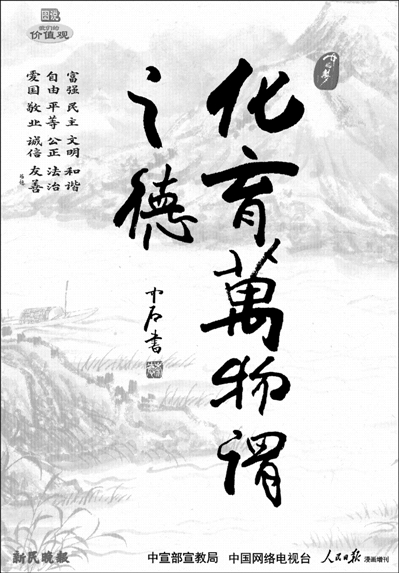 图说
我们的
价值观
中国梦
化育萬物謂
之德
中石書
富强 民主 文明 和谐
自由 平等 公正 法治
爱国 敬业 诚信 友善
新民晚报
中宣部宣教局 中国网络电视台 人民日报 漫画增刊